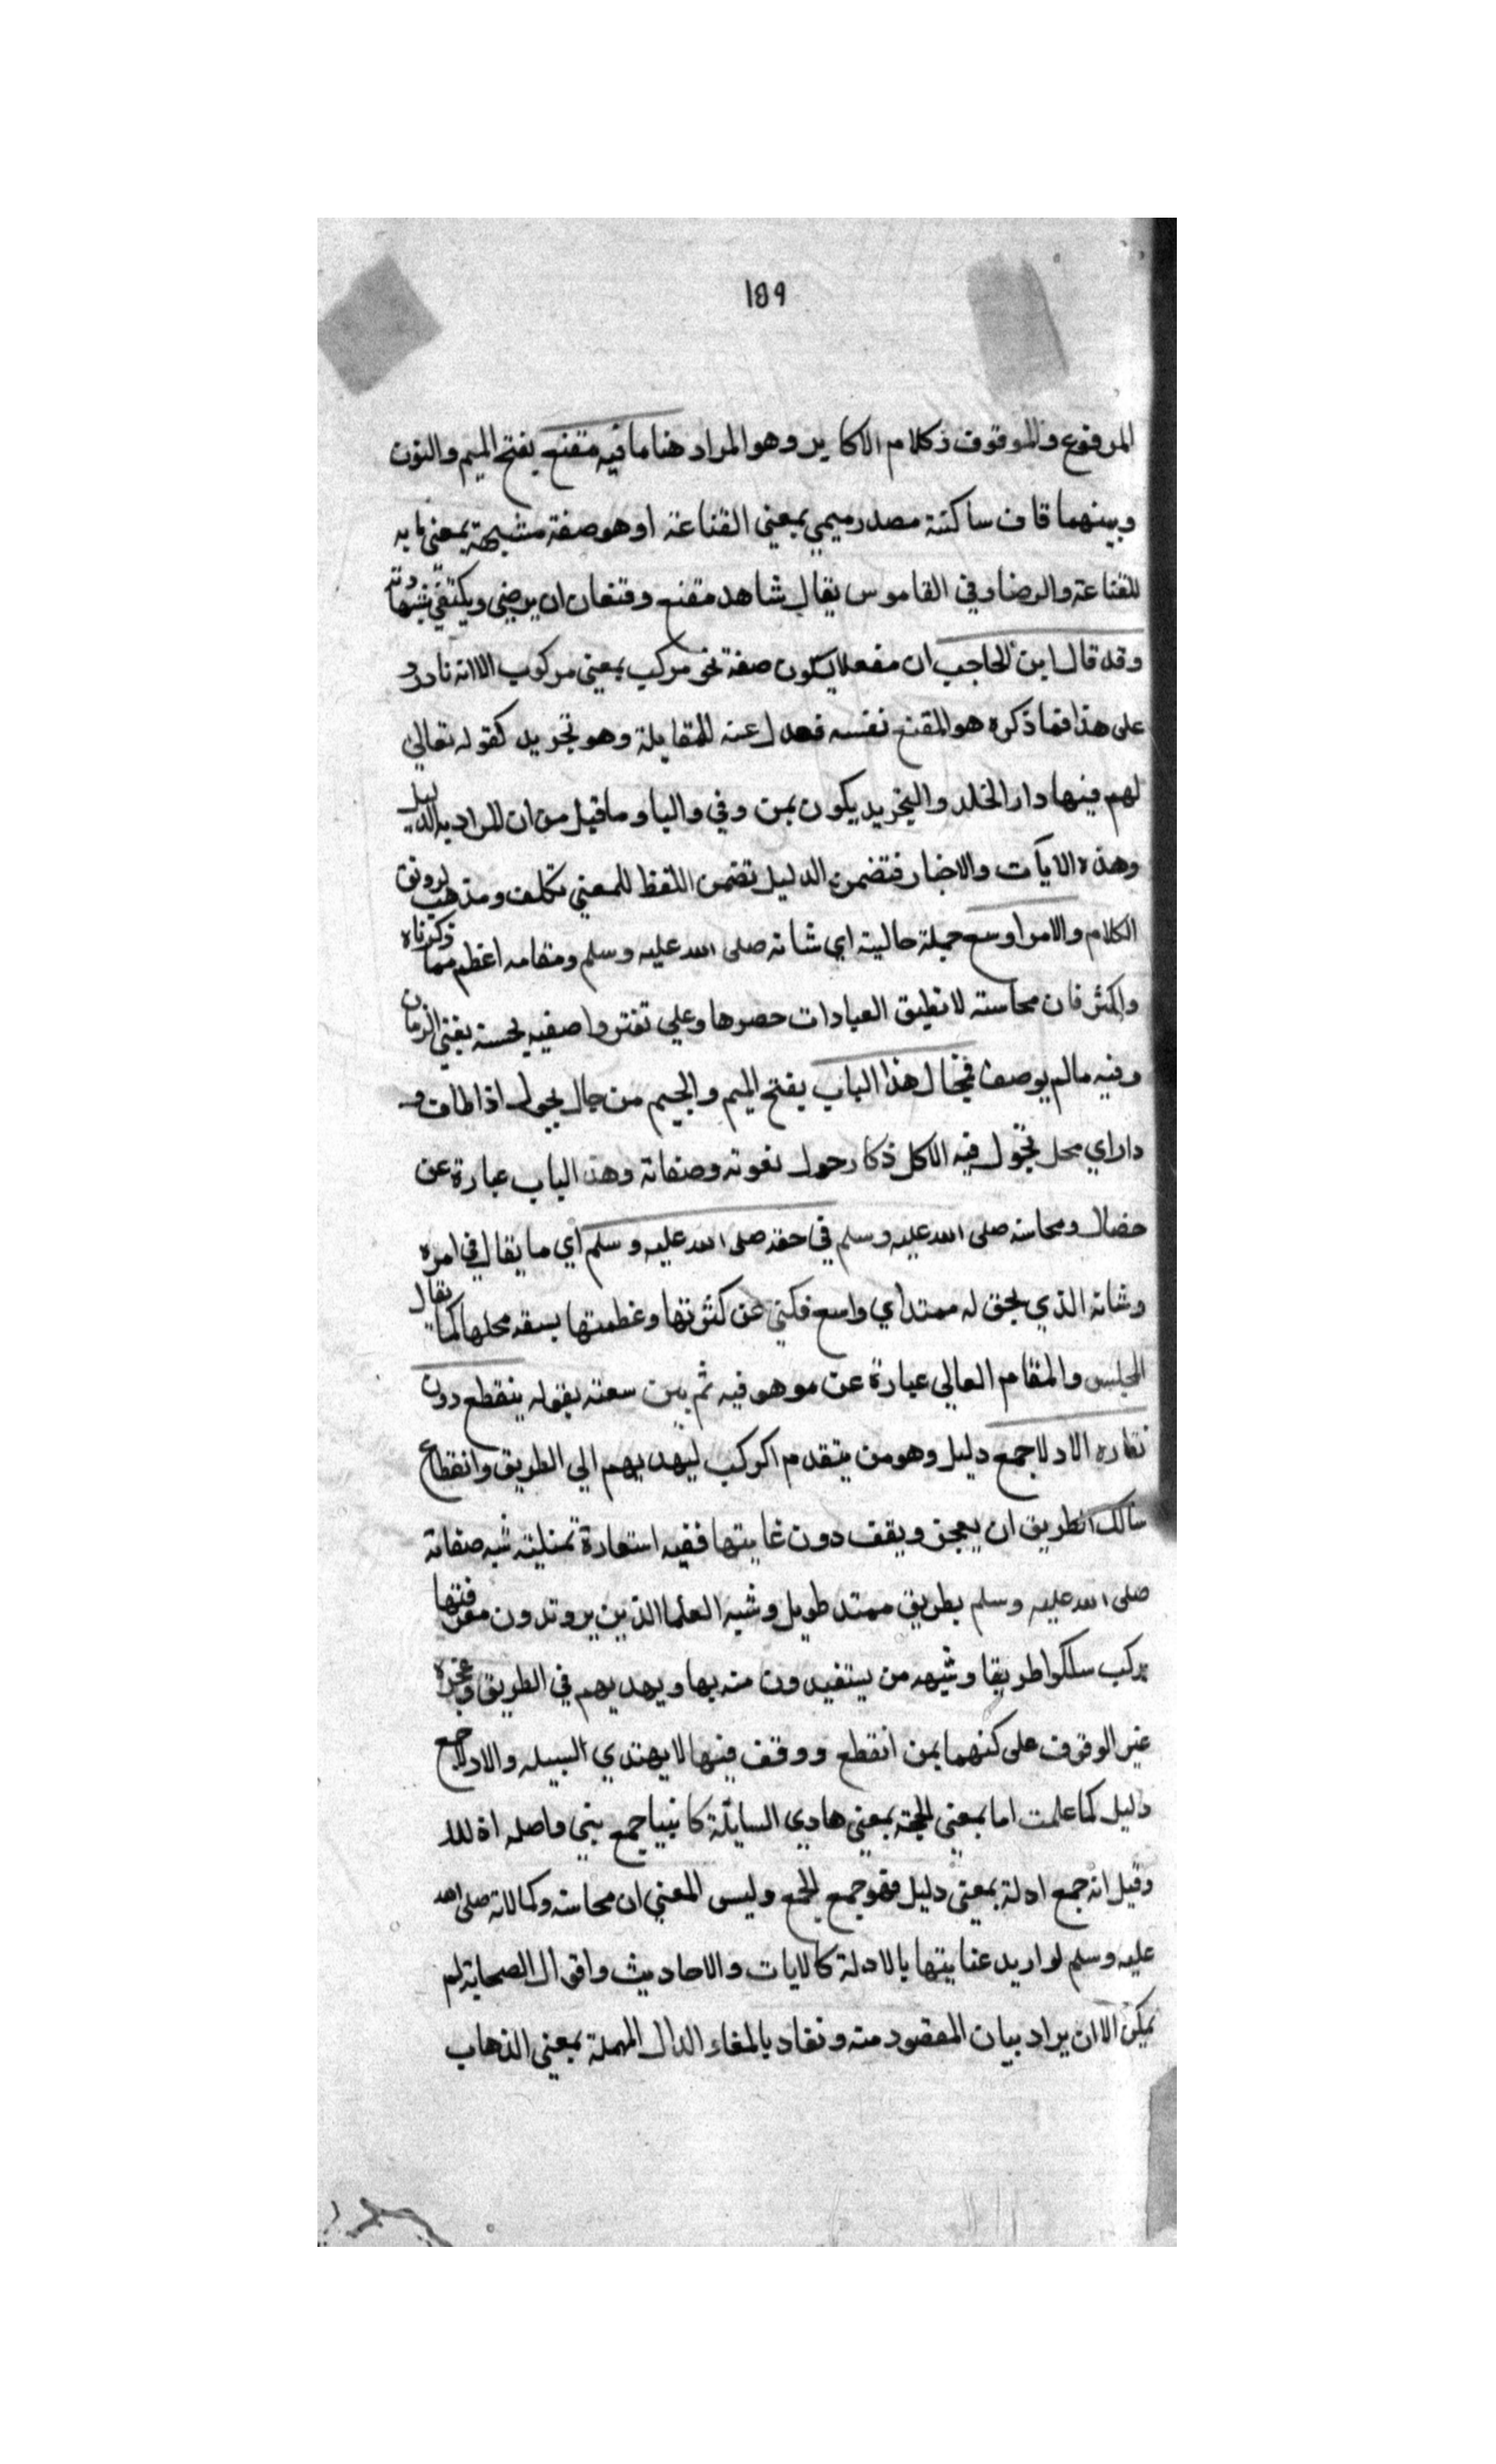 189
المرفوع والموقوف ذكلام الاكابر وهو المراد هنا ما فيه مقنع بفتح الميم والنون
وبينهما قاف ساكنة مصدر ميمي بمعني القناعة او هو صفة مشبهة بمعني ما به
للقناعة والرضا وفي القاموس يقال شاهد مقنع وقنعان ان يرضي ويكتفي بشهادته
وقد قال ابن الحاجب ان مفعلا يكون صفة نحو مركب بمعني مركوب الا انه نادر و
على هذا فما ذكره هو المقنع نفسه فعدل عنه للمقابلة وهو تجريد كقوله تعالي
لهم فيها دار الخلد والتجريد يكون بمن وفي واليا وما قيل من ان المراد به الدليل
وهذه الايات والاخبار فتضمن الدليل تضمن اللفظ للمعني تكلف ومذهب لرونق
الكلام والامر اوسع جملة حالية اي شانه صلى الله عليه وسلم ومقامه اعظم مما ذكرناه
واكثر فان محاسنه لا تطيق العبادات حصرها وعلي تفنن واصفيه لحسنه يفني الزمان
وفيه ما لم يوصف فمجال هذا الباب بفتح الميم والجيم من جال يجول اذا طاف و
دار اي محل تجول فيه الاكل ذكار حول نعوته وصفاته وهذ الباب عبارة عن
خصال ومحاسنه صلى الله عليه وسلم في حقه صلى الله عليه وسلم اي ما يقال في امره
وشانه الذي يحق له ممتد اي واسع فكني عن كثرتها وعظمتها بسعة محلها كما يقال
المجلس والمقام العالي عبارة عن موهو فيه ثم بين سعته بقوله ينقطع دون
نفاده الادلا جمع دليل وهو من يتقدم اكركب ليهديهم الي الطريق وانقطاع
سالك الطريق ان يعجز ويقف دون غايتها ففيه استعارة تمثلية شبه صفاته
صلى الله عليه وسلم بطريق ممتد طويل وشبه العلما الذين يرو تدون معرفتها
بركب سلكوا طريقا وشبهه من يستفيدون منه بها ويهديهم في الطريق وعجزه
عن الوقوف على كنهما بمن انقطع ووقف فيها لا يهتدي السبيله والادلا جمع
دليل كما علمت اما بمعني الحجة بمعني هادي السايلة كانبيا جمع نبي واصله اد للا
وقيل انه جمع ادلة بمعني دليل فهو جمع الجمع وليس المعني ان محاسنه وكمالاته صلى الله
عليه وسلم لو اريد عنايتها بالادلة كالايات والاحاديث واقوال الصحابة لم
يمكن الا ان يراد بيان المقصود منه ونفاد بالفاء الدال المهملة بمعني الذهاب